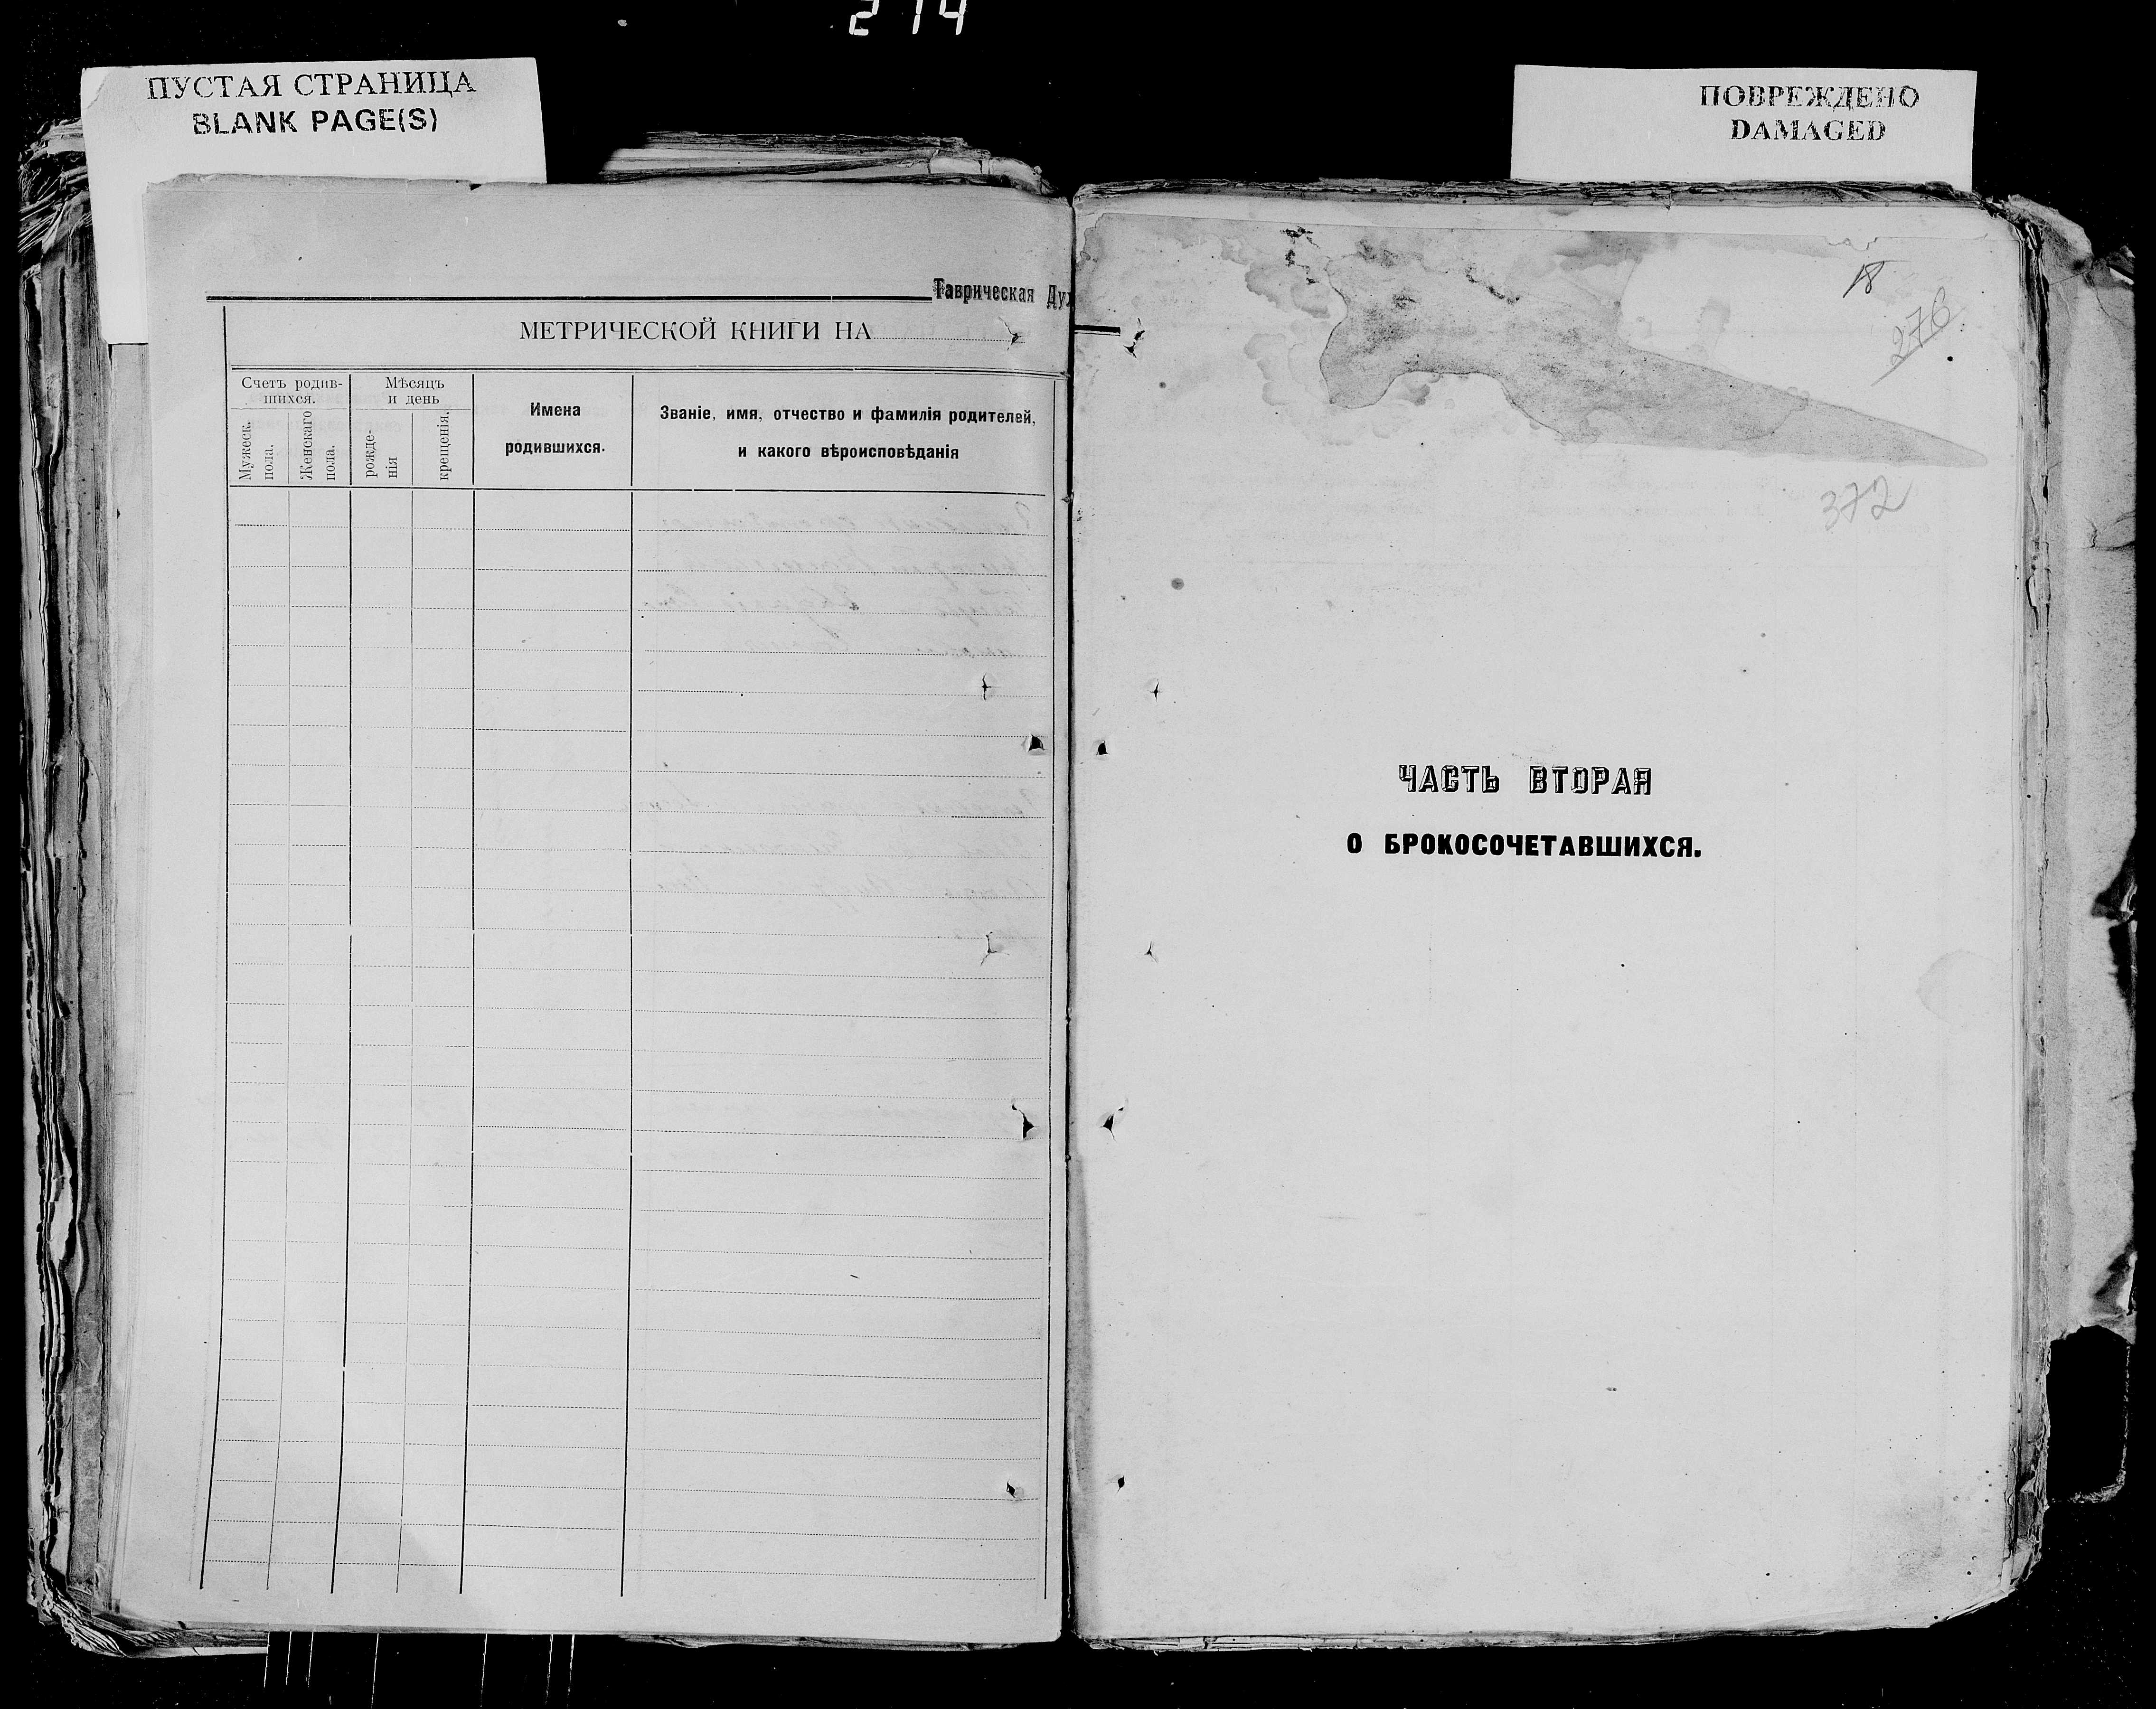 214
ПУСТАЯ СТРАНИЦА
BLANK PAGE(S)
ПОВРЕЖДЕНО
DAMAGED
Таврическая Дух
МЕТРИЧЕСКОЙ КНИГИ НА
Счетъ родив-
шихся.
Мѣсяцъ
и день
Мужеск.
пола.
Женскаго
пола.
рожде-
нія
крещенія.
Имена
родившихся.
Званіе, имя, отчество и фамилія родителей,
и какого вѣроисповѣданія
18
276
372
ЧАСТЬ ВТОРАЯ
О БРОКОСОЧЕТАВШИХСЯ.